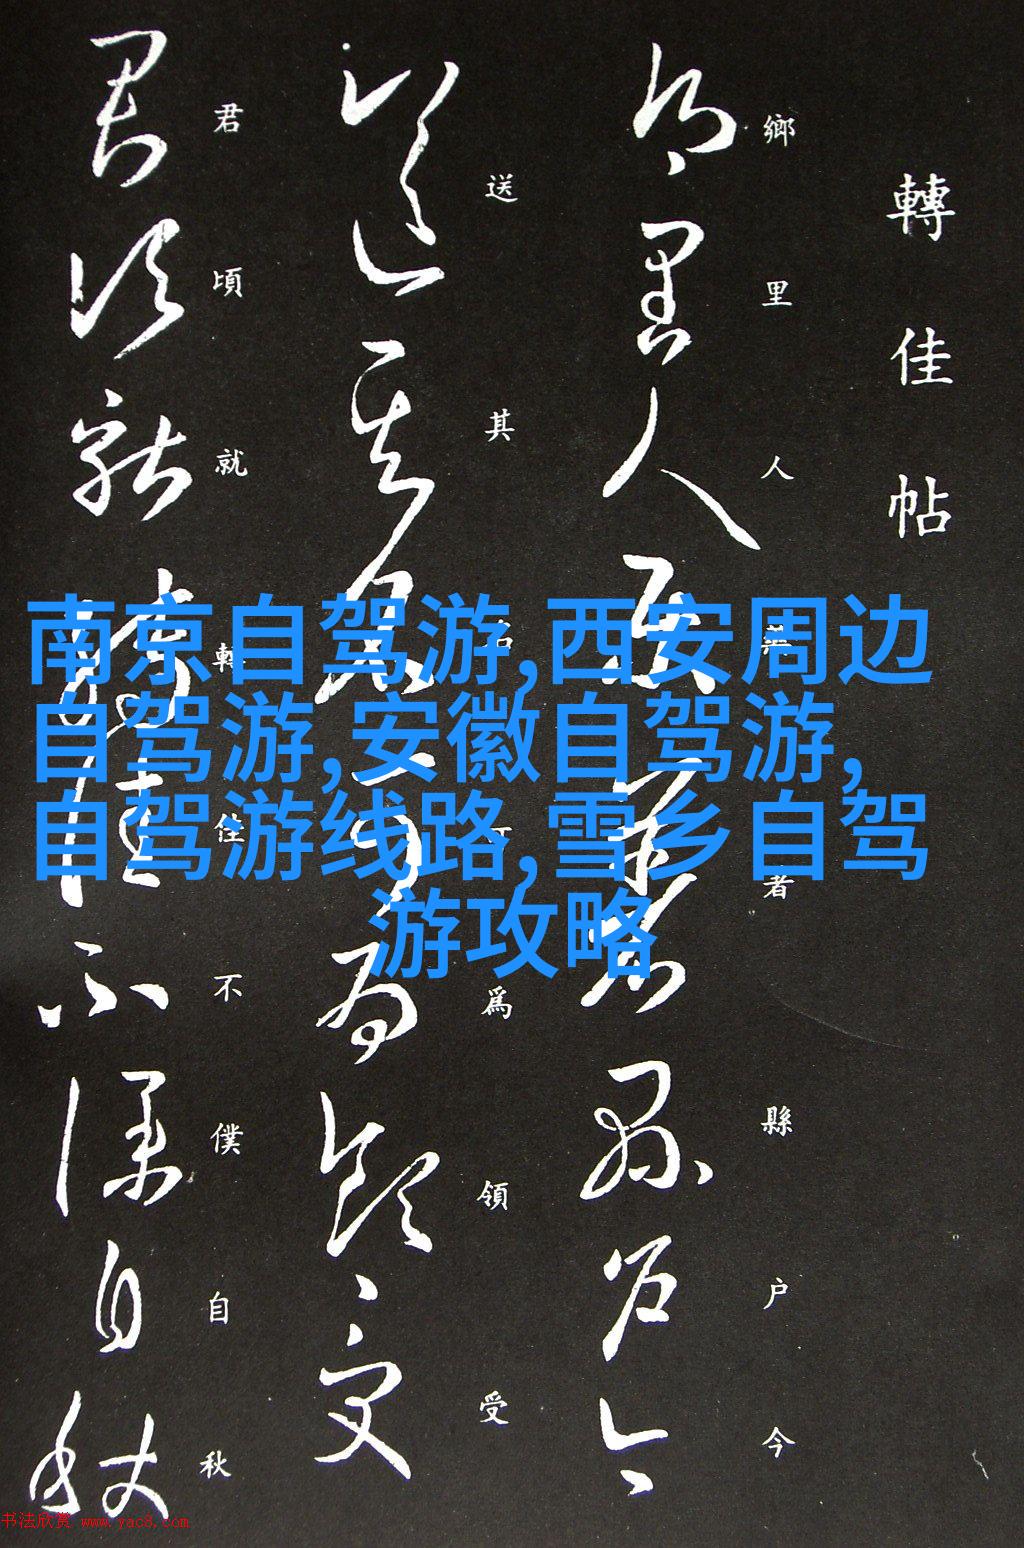 南京自驾游,西安周边
自驾游,安徽自驾游,
自驾游线路,雪乡自驾
游攻略
轉佳帖
鄉里人者縣户今
送其爲領受
君頃就轉佳不僕自秋
书法欣赏 www.yac8.com